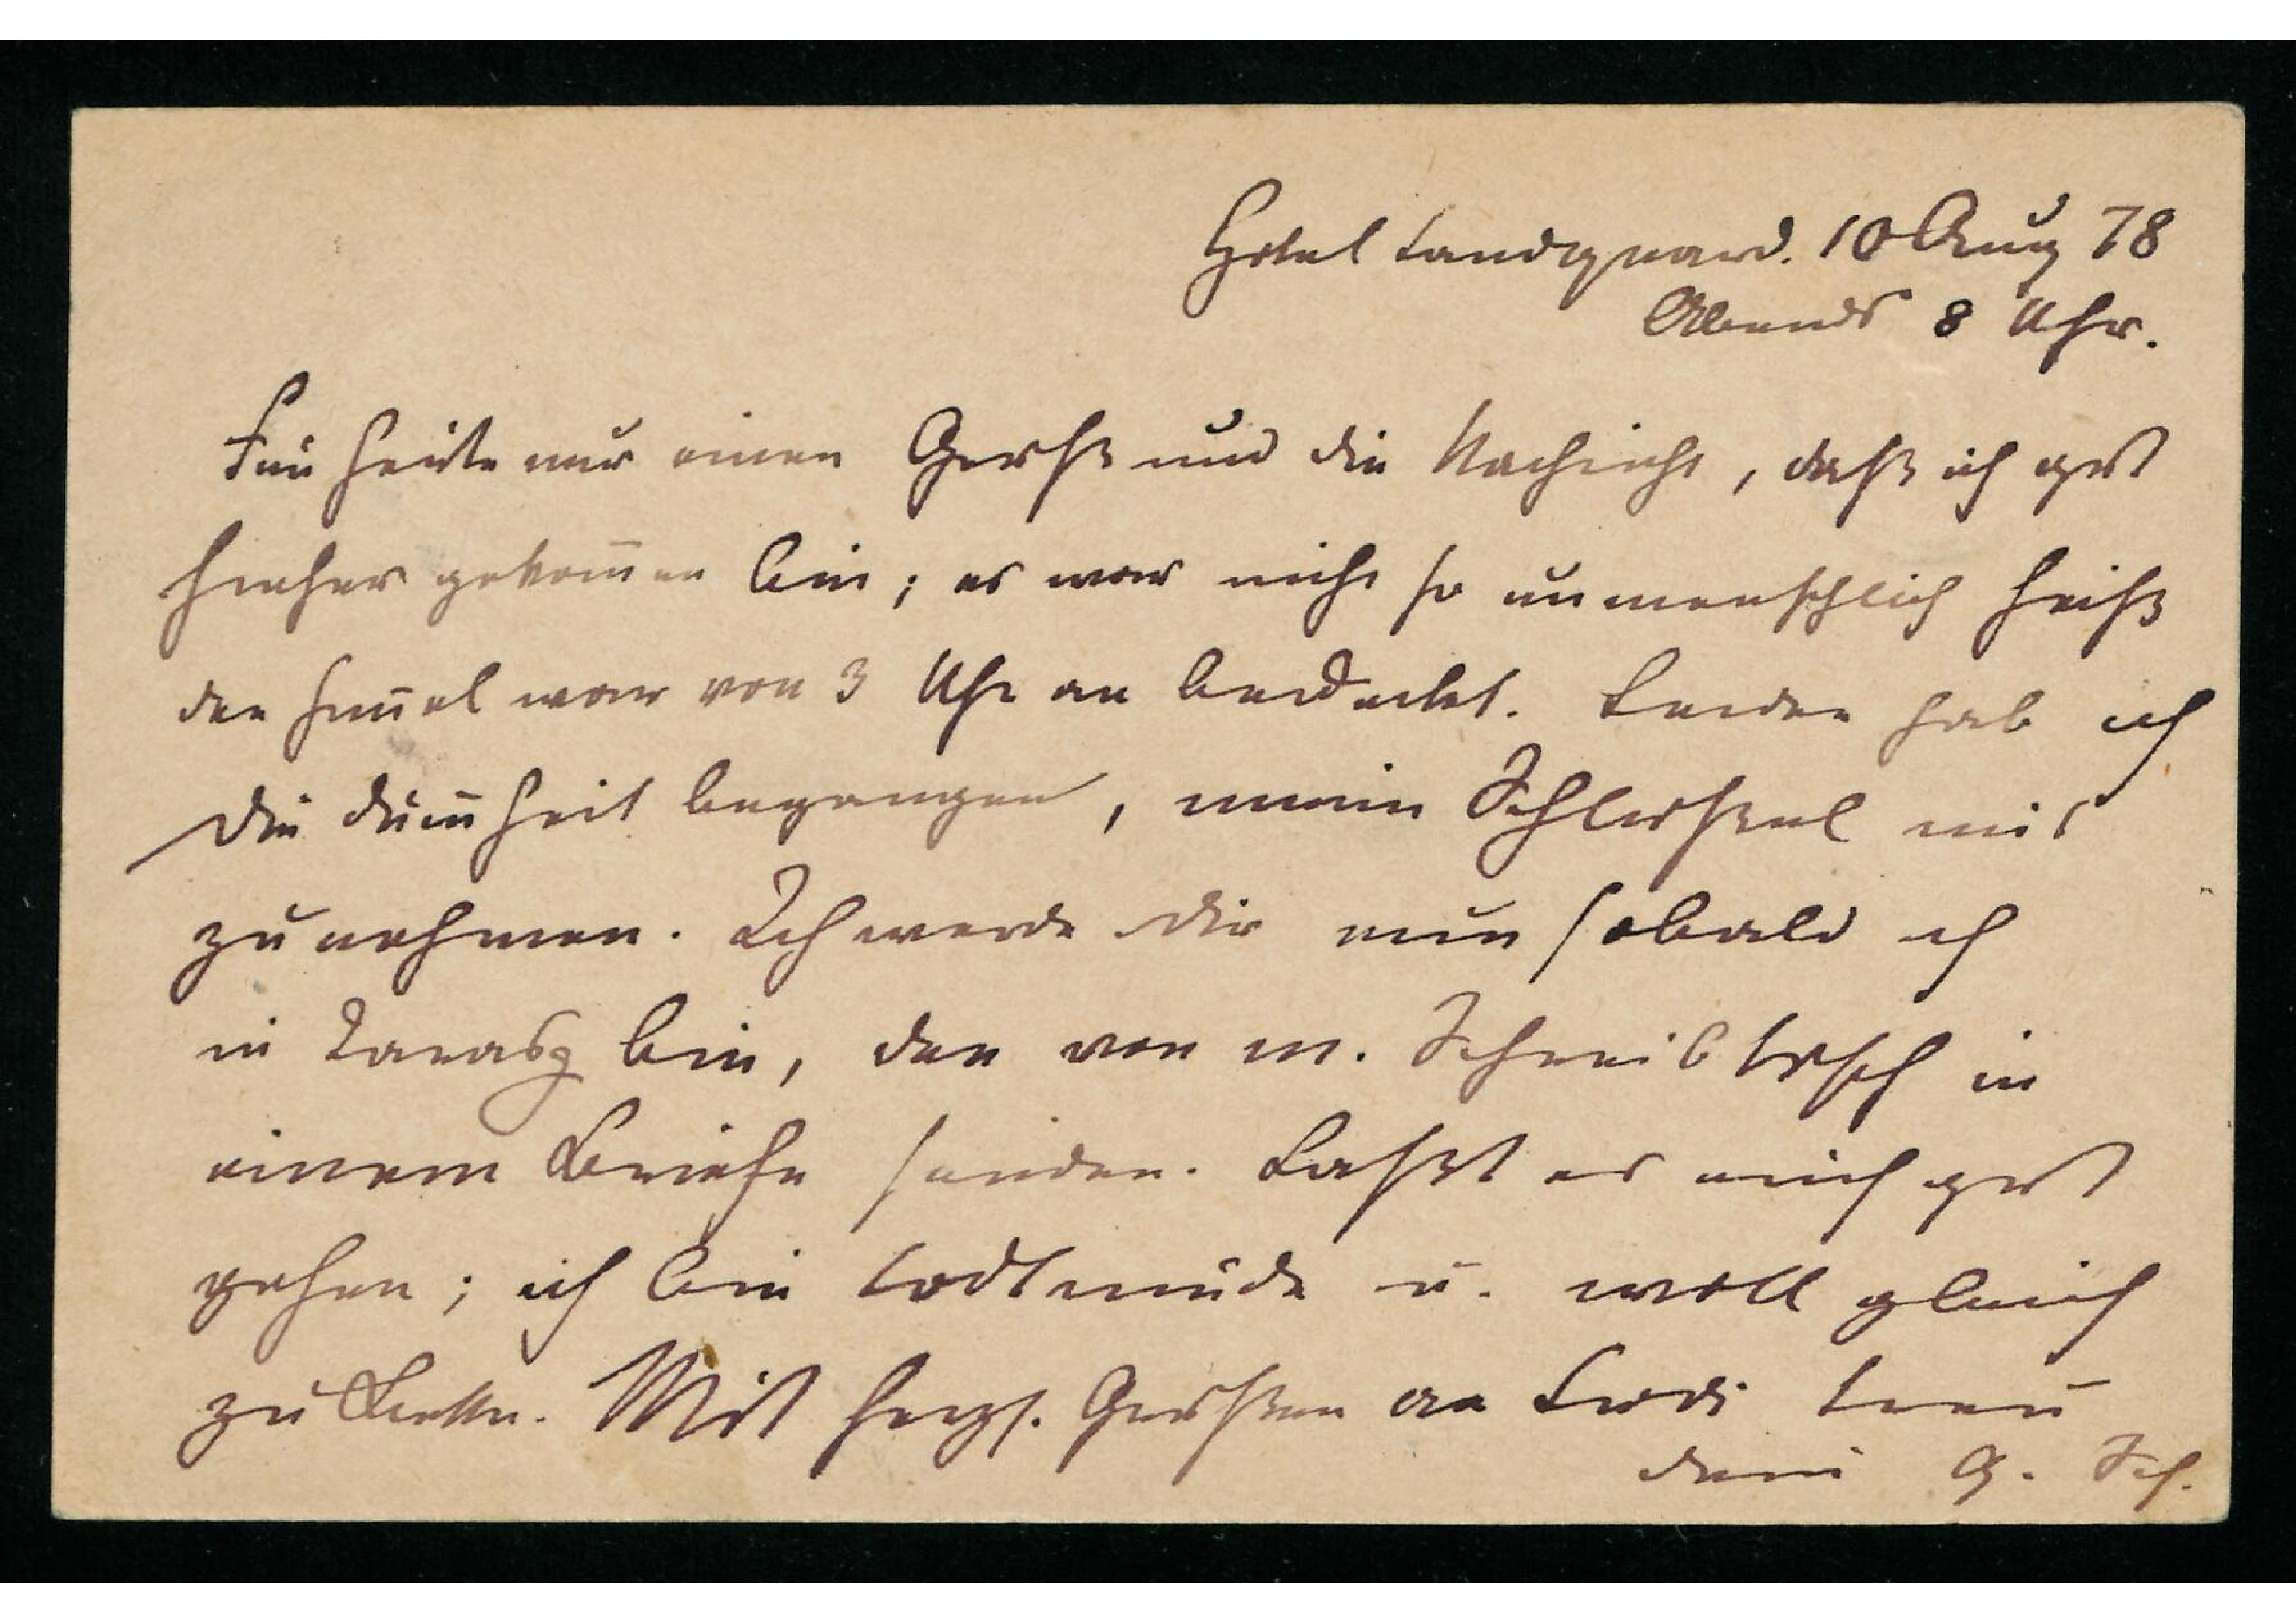 Hotel Landquard. 10 Aug 78
Abends 8 Uhr.
Für heute nur einen Gruß und die Nachricht, daß ich gut
hieher gekom̅en bin; es war nicht so unmenschlich heiß
der Him̅el war von 3 Uhr an bedeckt. Leider hab ich
die Dum̅heit begangen, meine Schlüßel mit
zu nehmen. Ich werde dir nun sobald ich
in Tarasp bin, den von m. Schreibtisch in
einem Briefe senden. Laßt es euch gut
gehen; ich bin todtmüde u. will gleich
zu Bette. Mit herzl. Grüßen an treu
dein G. Sch.